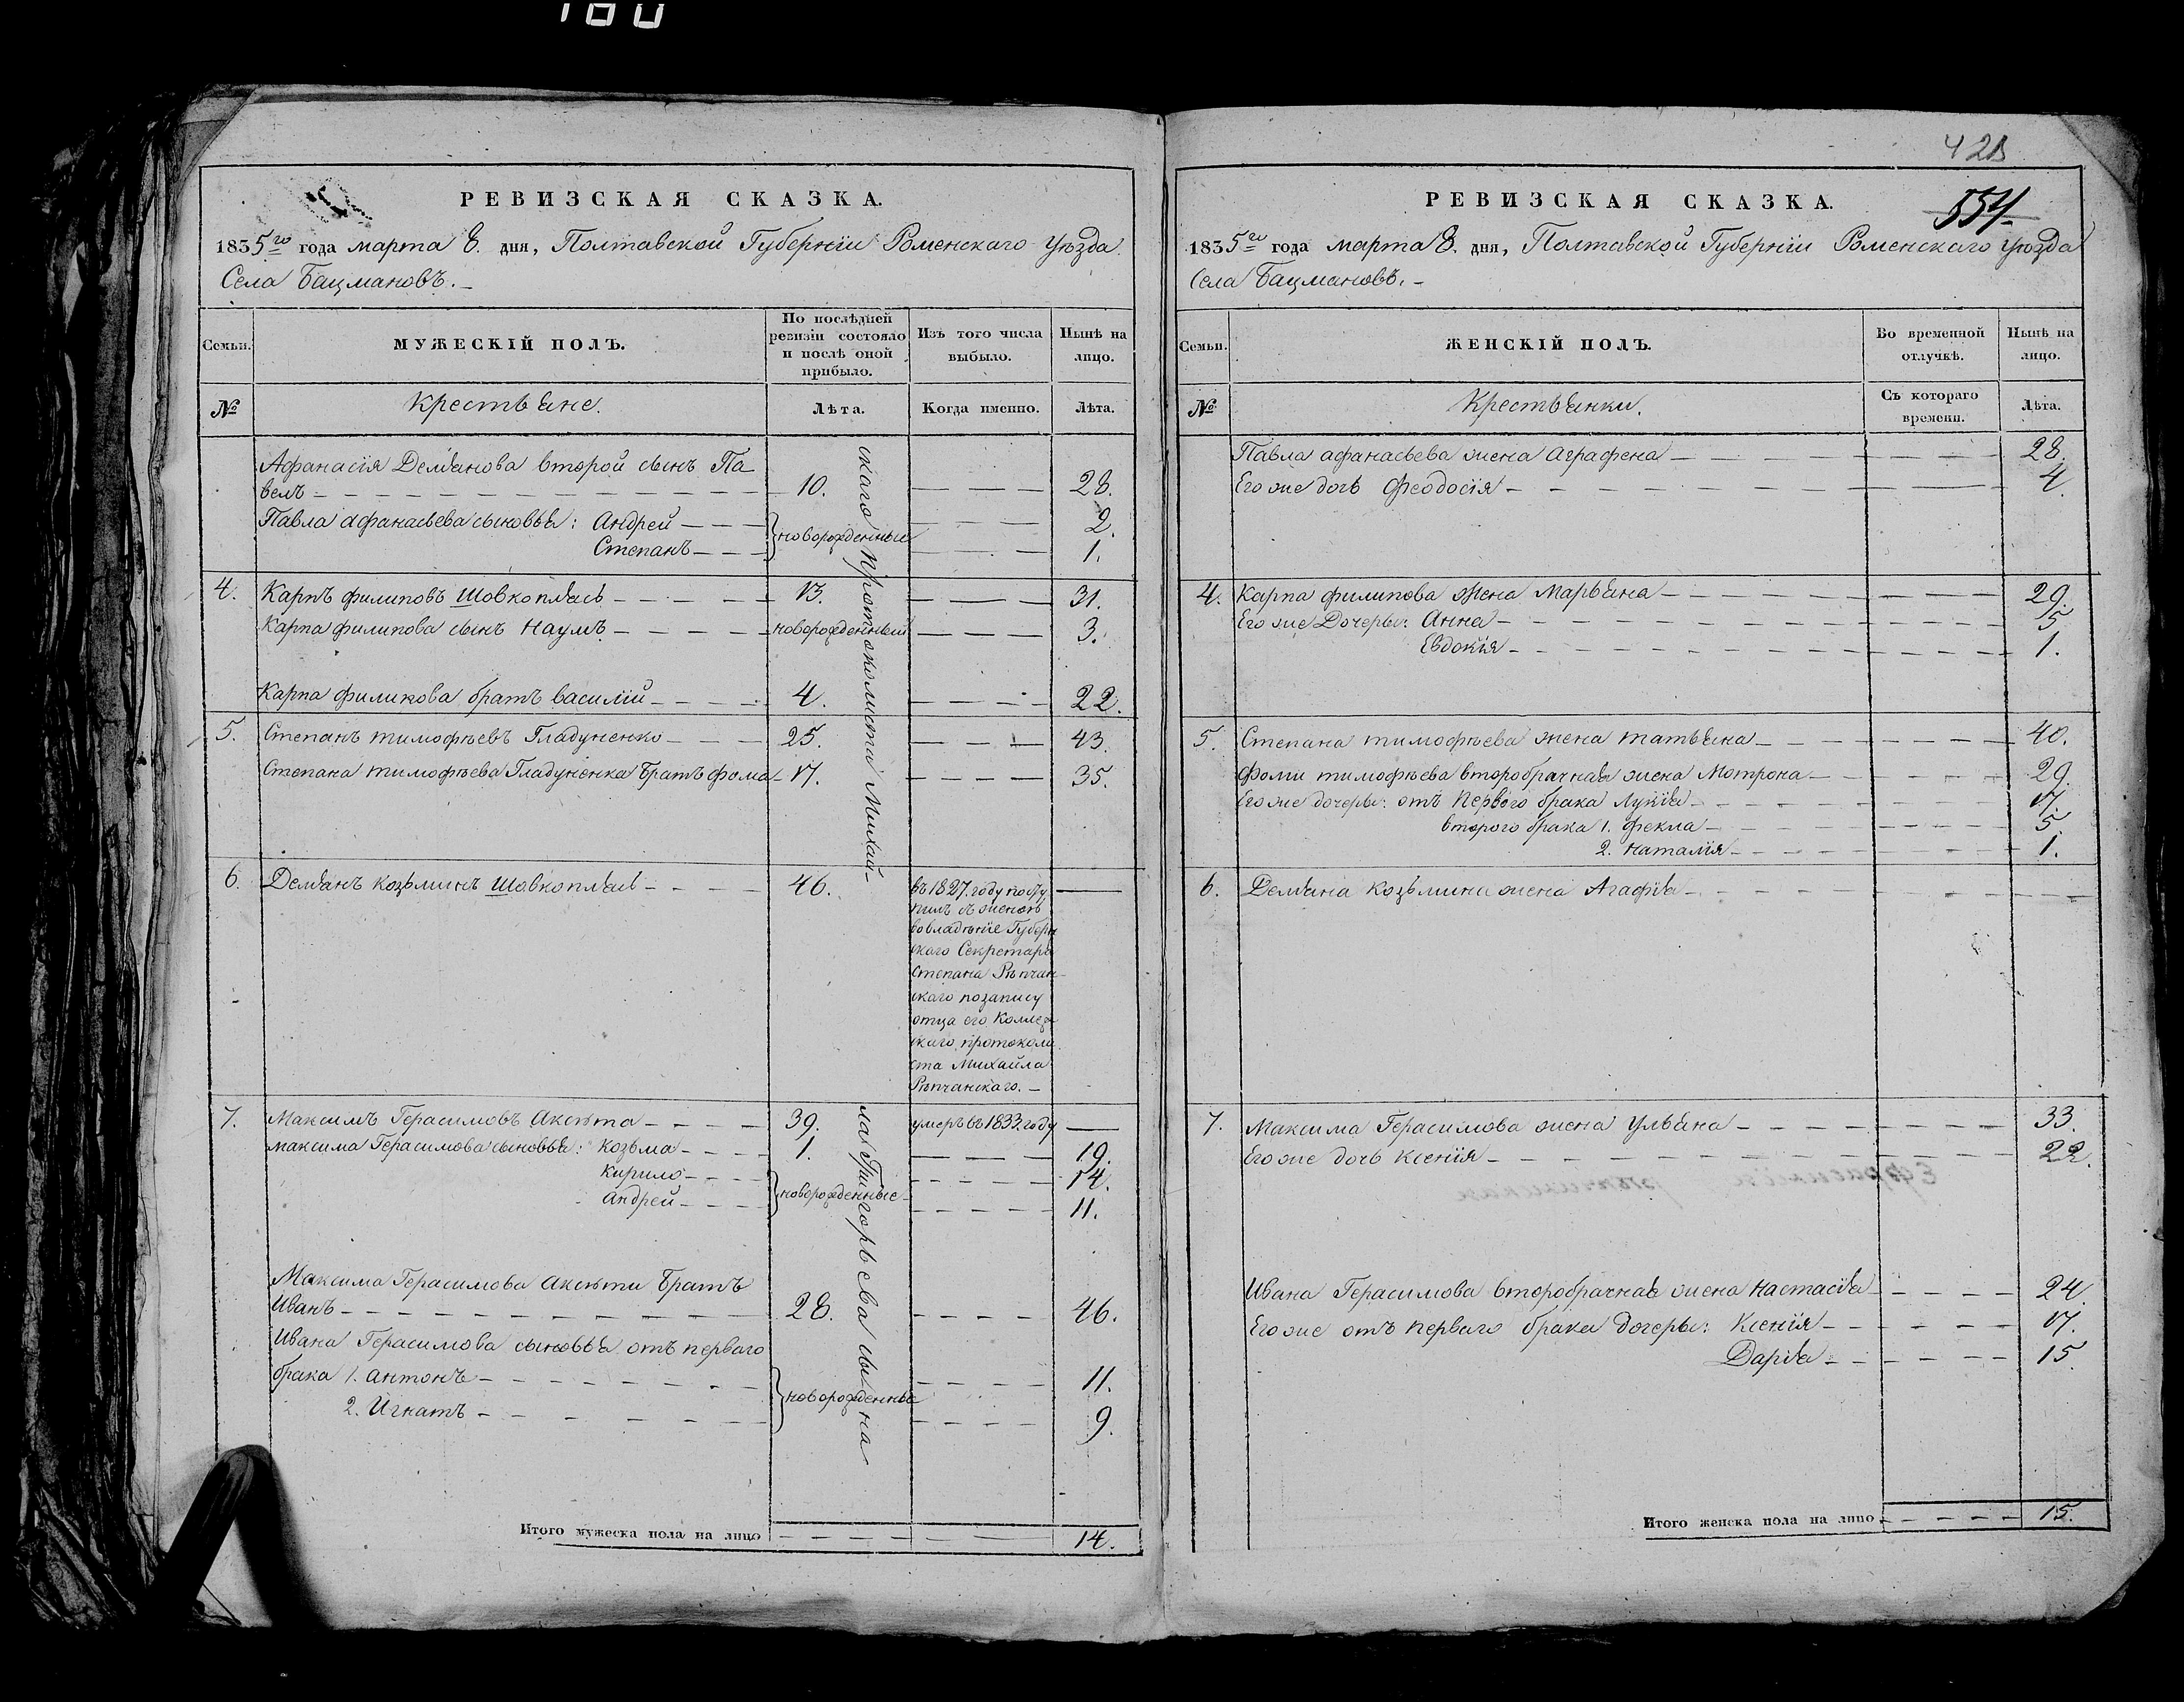 180
РЕВИЗСКАЯ СКАЗКА.
1835го года марта 8. дня, Полтавской Губернiи Роменскаго уѣзда
Села Бацмановъ.
Семьи.
МУЖЕСКIЙ ПОЛЪ.
По послѣдней ревизiи состояло и послѣ оной прибыло.
Изъ того числа выбыло.
Нынѣ на лицо.
№
Крестьяне.
Лѣта.
Когда именно.
Лѣта.
Афанасiя Демьянова второй сынъ Па
велъ 10. 28.
Павла афанасьева сыновья: Андрей 2.
новорожденные
Степанъ 1.
4. Карпъ филиповъ Шовкоплясъ 13. 31.
Карпа филипова сынъ Наумъ новорожденный 3.
Карпа филипова братъ василiй 4. 22.
5. Степанъ тимофѣевъ Гладуненко 25. 43.
Степана тимофѣева Гладуненка братъ фома 17. 35.
6. Демьянъ козьминъ Шовкоплясъ 46.
въ 1827 году посту
пилъ съ женою
во владѣнiе Губерн
скаго Секретаря
Степана Рѣпчан
скаго позапису
отца его Коллеж
скаго протоколи
ста Михайла
Рѣпчанскаго.
7. Максимъ Герасимовъ Аксюта 39. умеръ въ 1833. году
максима Герасимова сыновья: Козьма 1. 19.
Кирило 14.
новорожденные
Андрей 11.
Максима Герасимова Аксюти братъ
Иванъ 28. 46.
Ивана Герасимова сыновья отъ перваго
брака 1. Антонъ 11.
новорожденные
2. Игнатъ 9.
скаго протоколиста Михай-
ла Григорьева сына
Итого мужеска пола на лицо 14.
428
554
РЕВИЗСКАЯ СКАЗКА.
1835го года марта 8. дня, Полтавской Губернiи Роменскаго уѣзда
Села Бацмановъ.
Семьи.
ЖЕНСКIЙ ПОЛЪ.
Во временной отлучкѣ.
Нынѣ на лицо.
№
Крестьянки.
Съ котораго времени.
Лѣта.
Павла афанасьева жена Аграфена 28.
Его же дочь Феодосiя 4.
4. Карпа филипова жена Марьяна 29.
Его же Дочеры: Анна 5
Евдокiя 1.
5. Степана тимофѣева жена татьяна 40.
Фоми тимофѣева второбрачная жена Мотрона 29.
Его же дочеры: отъ перваго брака Лукiя 17.
второго брака 1. Фекла 5.
2. Наталiя 1.
6. Демьяна козьмина жена Агафiя
7. Максима Герасимова жена ульяна 33.
Его же дочь Ксенiя 22.
Ивана Герасимова второбрачная жена Настасiя 24.
Его же отъ перваго брака дочеры: Ксенiя 17.
Дарiя 15.
Итого женска пола на лицо 15.